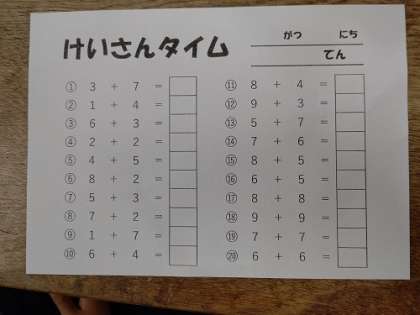 けいさんタイム
がつ にち
てん
① 3 + 7 =
② 1 + 4 =
③ 6 + 3 =
④ 2 + 2 =
⑤ 4 + 5 =
⑥ 8 + 2 =
⑦ 5 + 3 =
⑧ 7 + 2 =
⑨ 1 + 7 =
⑩ 6 + 4 =
⑪ 8 + 4 =
⑫ 9 + 3 =
⑬ 5 + 7 =
⑭ 7 + 6 =
⑮ 8 + 5 =
⑯ 6 + 5 =
⑰ 8 + 8 =
⑱ 9 + 9 =
⑲ 7 + 7 =
⑳ 6 + 6 =